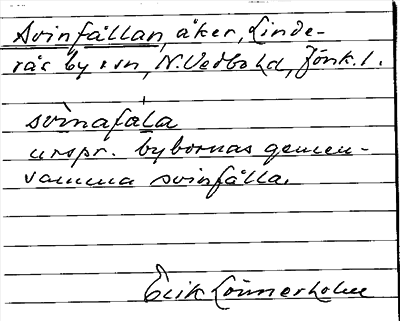 Svinfållan, åker, Linde-
rås by o sn, N. Vedbo hd, Jönk. l.
svinafåla
urspr. bybornas gemen-
samma svinfålla.
Erik Lönnerholm